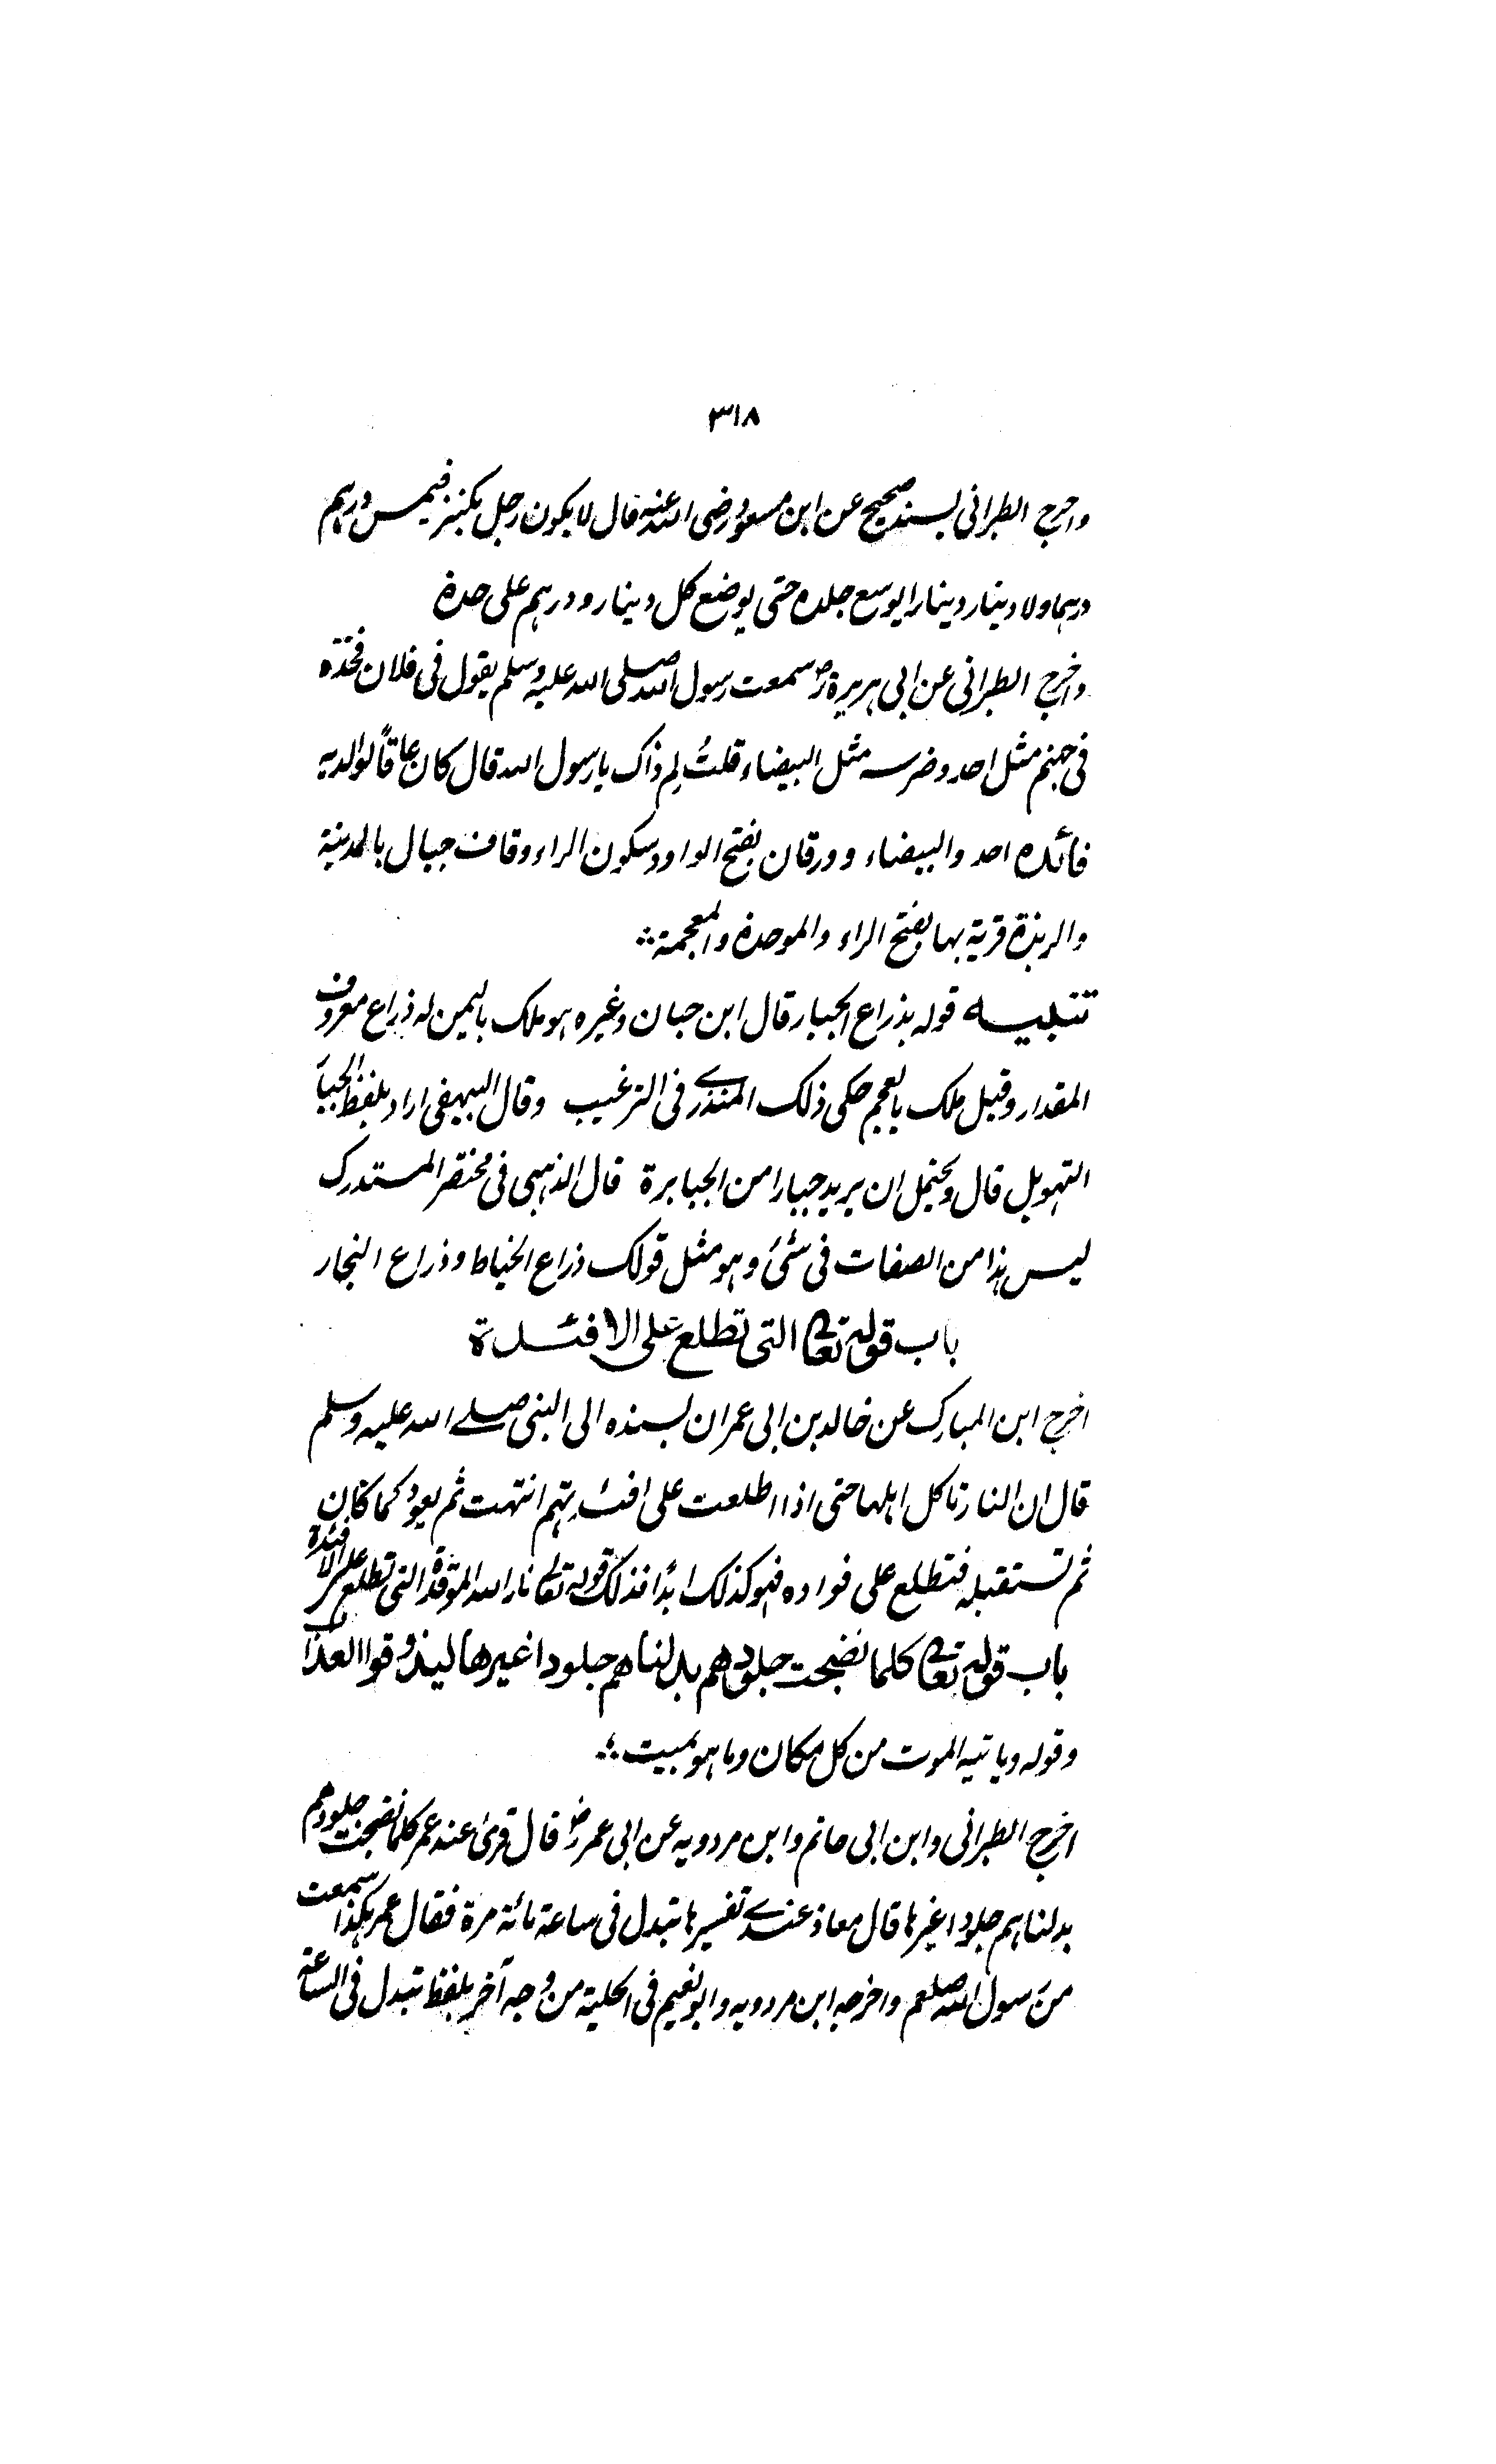 ٣١٨
واخرج الطبرانی بسند صحیح عن ابن مسعود رضی الله عنه قال لا یکون رجل یکنز فیمس درہم
درہما ولا دینار دینارا یوسع جلده حتی یوضع کل دینار و درہم علی حدة
واخرج الطبرانی عن ابی ہریرة رض سمعت رسول الله صلی الله علیه وسلم یقول فی فلان فخذه
فی جہنم مثل احد وضرسه مثل البیضاء قلتُ لِم ذاک یا رسول الله قال کان عاقاً لوالدیه
فائده احد والبیضاء وورقان بفتح الواو وسکون الراء وقاف جبال بالمدینة
والربذة قریة بہا بفتح الراء والموحدة والمعجمة
تنبیه قوله بذراع الجبار قال ابن حبان وغیره ہو ملک بالیمن له ذراع معروف
المقدار وقیل ملک بالعجم حکی ذلک المنذرے فی الترغیب وقال البیہقی اراد بلفظ الجبار
التہویل قال ویحتمل ان یرید جبارا من الجبابرة قال الذہبی فی مختصر المستدرک
لیس ہذا من الصفات فی شیٔ وہو مثل قولک ذراع الخیاط وذراع النجار
باب قوله تعالی التی تطلع علی الافئدة
اخرج ابن المبارک عن خالد بن ابی عمران بسنده الی النبی صلے الله علیه وسلم
قال ان النار تاکل اہلہا حتی اذا اطلعت علی افئدتہم انتہت ثم یعود کما کان
ثم تستقبله فتطلع علی فواده فہو کذلک ابدًا فذلک قوله تعالی نار الله الموقدة التی تطلع علی الافئدة
باب قوله تعالی کلما نضجت جلودهم بدلناهم جلودا غیرها لیذوقوا العذاب
وقوله ویاتیه الموت من کل مکان وما ہو بمیت
اخرج الطبرانی وابن ابی حاتم وابن مردویه عن ابی عمر رض قال قرئ عند عمر کلما نضجت جلودهم
بدلناہم جلودا غیرہا قال معاذ عندے تفسیرہا تبدل فی ساعة مائة مرة فقال عمر ہکذا سمعت
من رسول الله صلعم واخرجه ابن مردویه وابو نعیم فی الحلیة من وجه آخر بلفظ تبدل فی الساعة